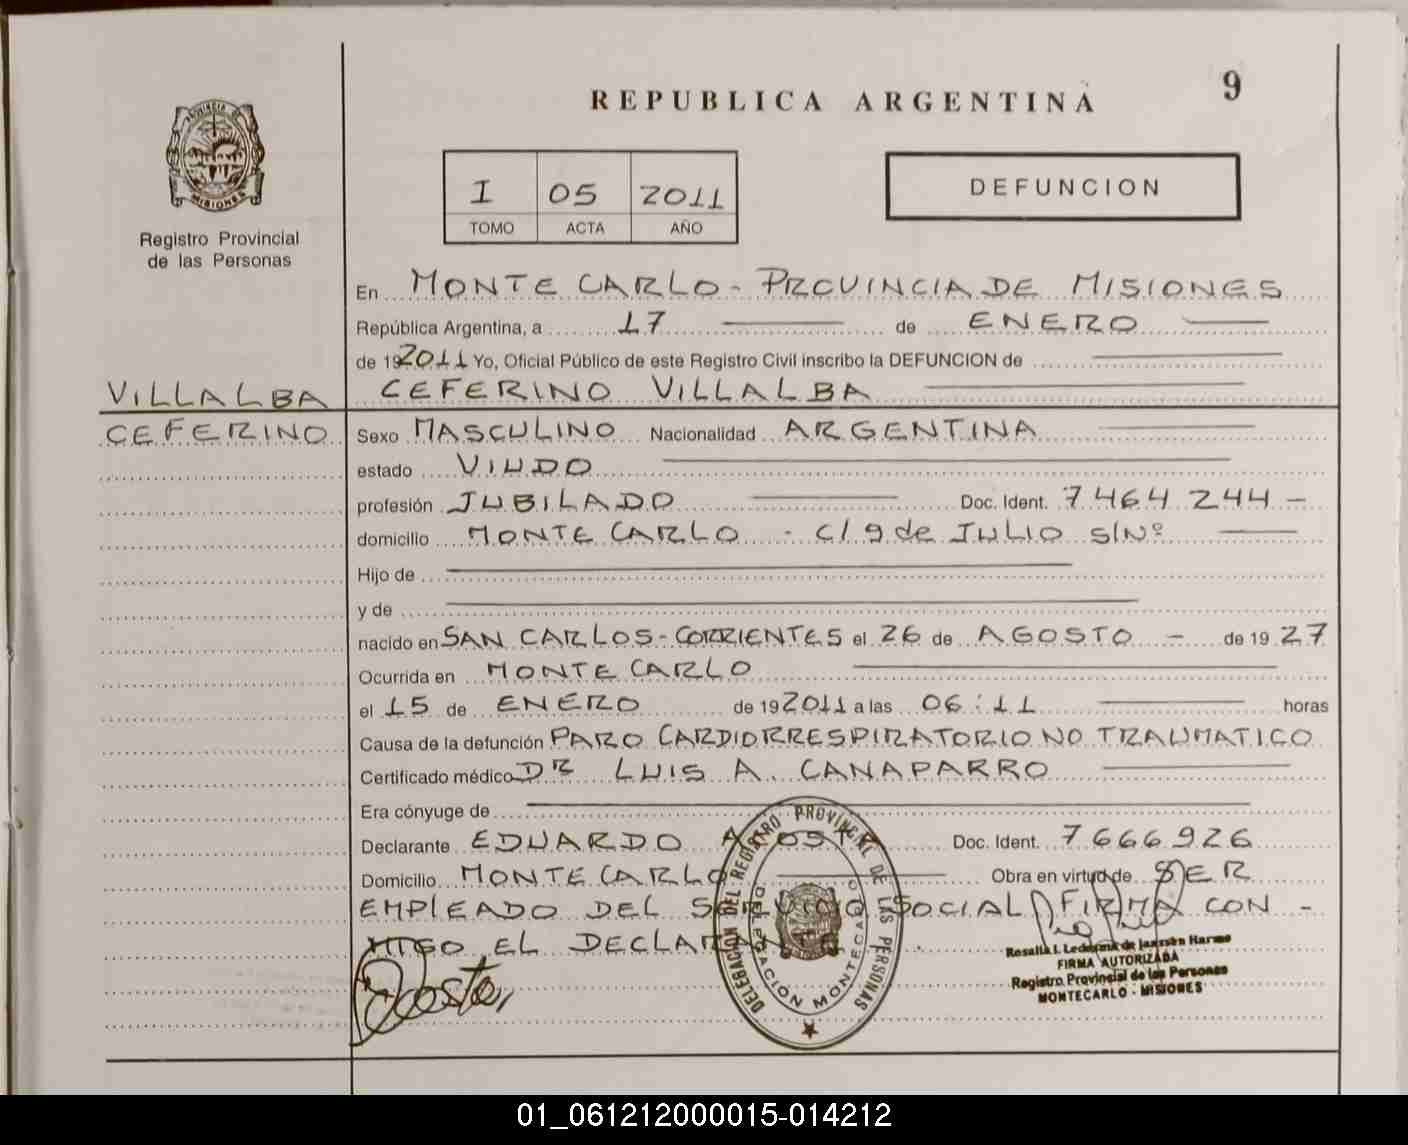 9
REPUBLICA ARGENTINA
PROVINCIA D
MISIONES
Registro Provincial
de las Personas
I 05 2011
TOMO ACTA AÑO
DEFUNCION
En MONTE CARLO - PROVINCIA DE MISIONES
República Argentina, a 17 de ENERO
de 192011 Yo, Oficial Público de este Registro Civil inscribo la DEFUNCION de
VILLALBA CEFERINO VILLALBA
CEFERINO Sexo MASCULINO Nacionalidad ARGENTINA
estado VIUDO
profesión JUBILADO Doc. Ident. 7464244 -
domicilio MONTE CARLO - C/ 9 de JULIO S/Nº
Hijo de
y de
nacido en SAN CARLOS - CORRIENTES el 26 de AGOSTO - de 19 27
Ocurrida en MONTE CARLO
el 15 de ENERO de 192011 a las 06:11 horas
Causa de la defunción PARO CARDIORRESPIRATORIO NO TRAUMATICO
Certificado médico DR LUIS A. CANAPARRO
Era cónyuge de
Declarante EDUARDO ACOSTA Doc. Ident. 7666926
Domicilio MONTE CARLO Obra en virtud de SER
EMPLEADO DEL SERVICIO SOCIAL FIRMA CON -
MIGO EL DECLARANTE
DELEGACION DEL REGISTRO PROVINCIAL DE LAS PERSONAS
DELEGACION MONTECARLO
Rosalia I. Ledesma de Janssen Harms
FIRMA AUTORIZADA
Registro Provincial de las Personas
MONTECARLO - MISIONES
01_061212000015-014212